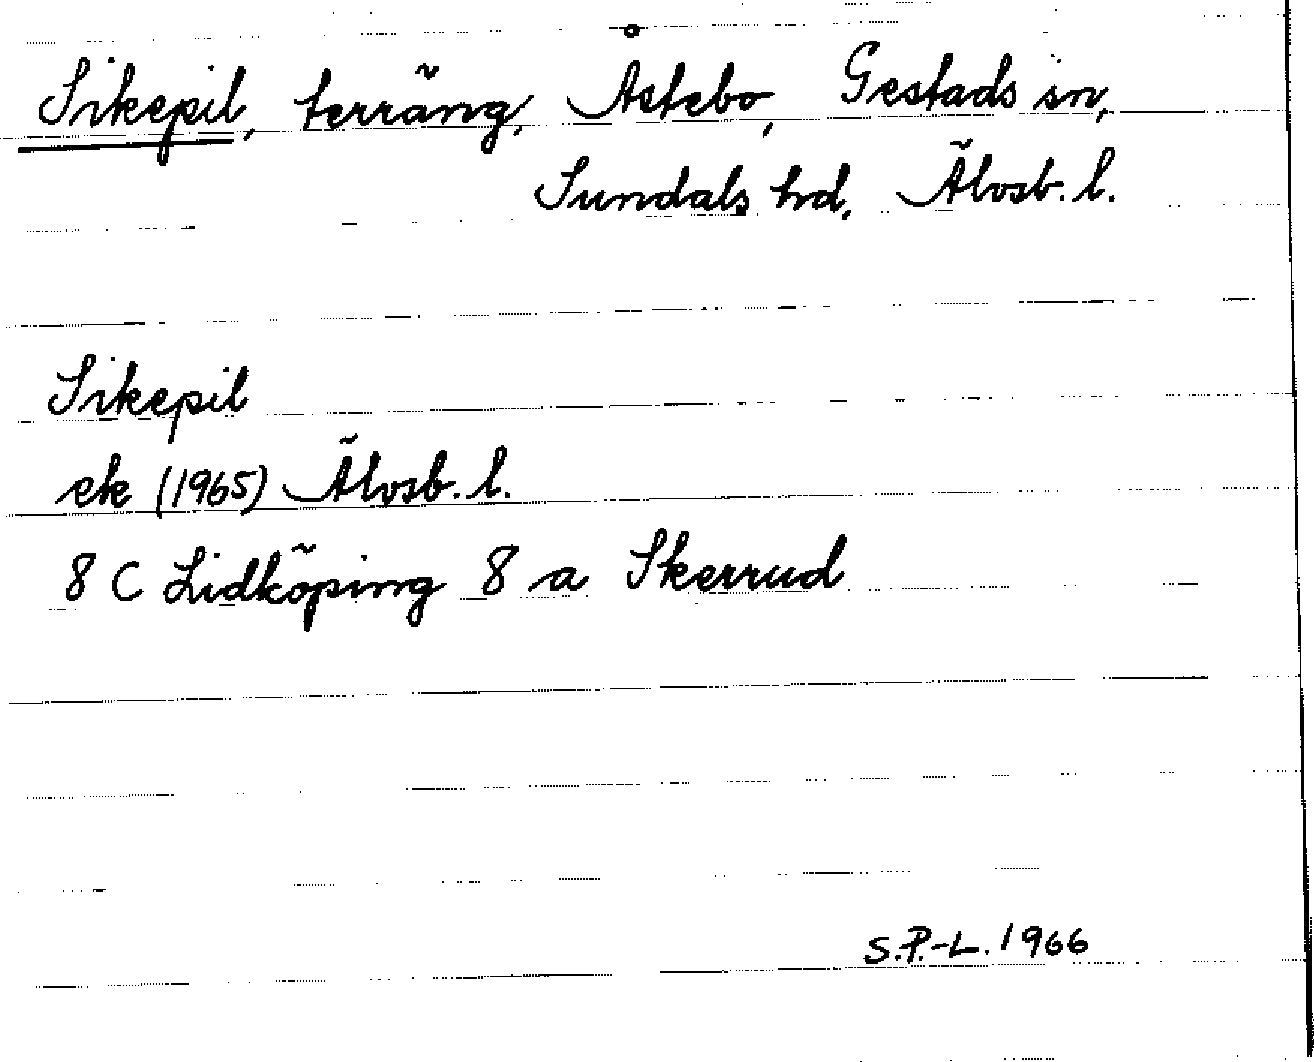 Sikepil, terräng, Åstebo, Gestads sn,
Sundals hd, Älvsb. l.
Sikepil
ek (1965) Älvsb. l.
8 C Lidköping 8 a Skerrud
S.P.-L. 1966